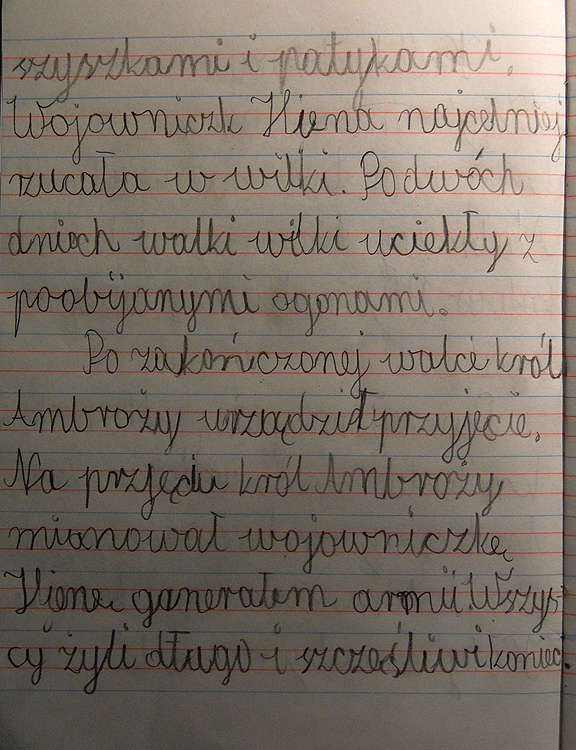 szyszkami i patykami.
Wojowniczk Hiena najcelniej
rzucała w wilki. Po dwóch
dniach walki wilki uciekły z
poobijanymi ogonami.
Po zakończonej walce król
Ambroży urządził przyjęcie.
Na przjęciu król Ambroży
mianował wojowniczkę
Hienę ganerałem armii. Wszys
cy żyli długo i szczęśliwi koniec.